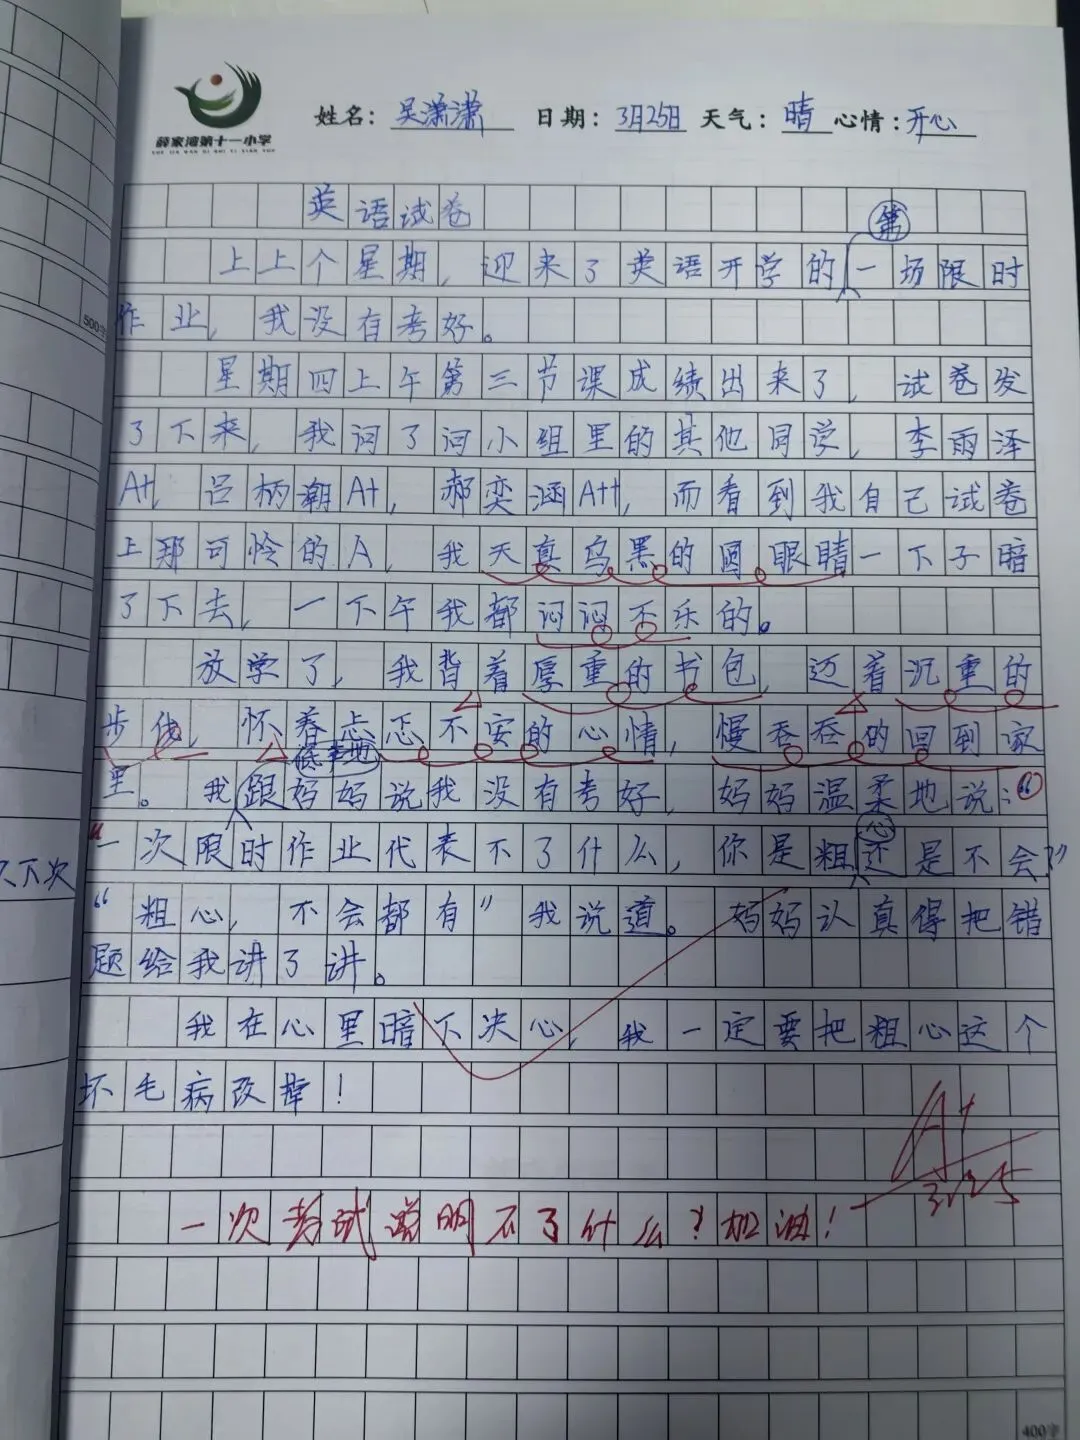 薛家湾第十一小学
姓名：吴潇潇 日期：3月25日 天气：晴 心情：开心
英语试卷
第
上上个星期，迎来了英语开学的一场限时
作业，我没有考好。
500字
星期四上午第三节课成绩出来了，试卷发
了下来，我问了问小组里的其他同学，李雨泽
A+，吕柄潮A+，郝奕涵A++，而看到我自己试卷
上那可怜的A，我天真乌黑的圆眼睛一下子暗
了下去，一下午我都闷闷不乐的。
放学了，我背着厚重的书包，迈着沉重的
步伐，怀着忐忑不安的心情，慢吞吞的回到家
里。我跟妈妈说我没有考好，妈妈温柔地说：“
心
“一次限时作业代表不了什么，你是粗还是不会？”
下次
“粗心，不会都有”我说道。妈妈认真得把错
题给我讲了讲。
我在心里暗下决心，我一定要把粗心这个
坏毛病改掉！
A+
3.25
一次考试说明不了什么？加油！
400字